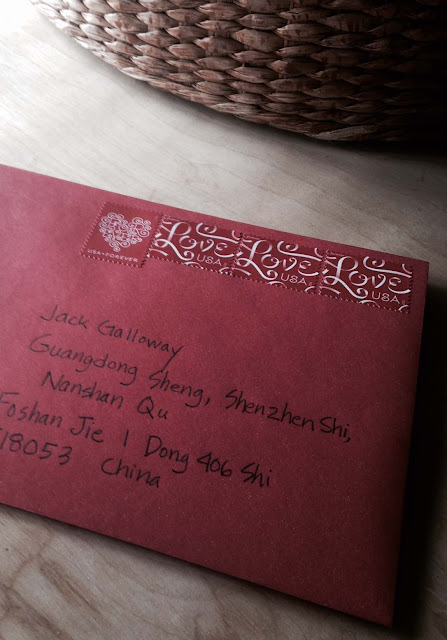 USA • FOREVER
Love
USA
Love
USA
Love
USA
Jack Galloway
Guangdong Sheng, Shenzhen Shi,
Nanshan Qu
Foshan Jie 1 Dong 406 Shi
18053 China